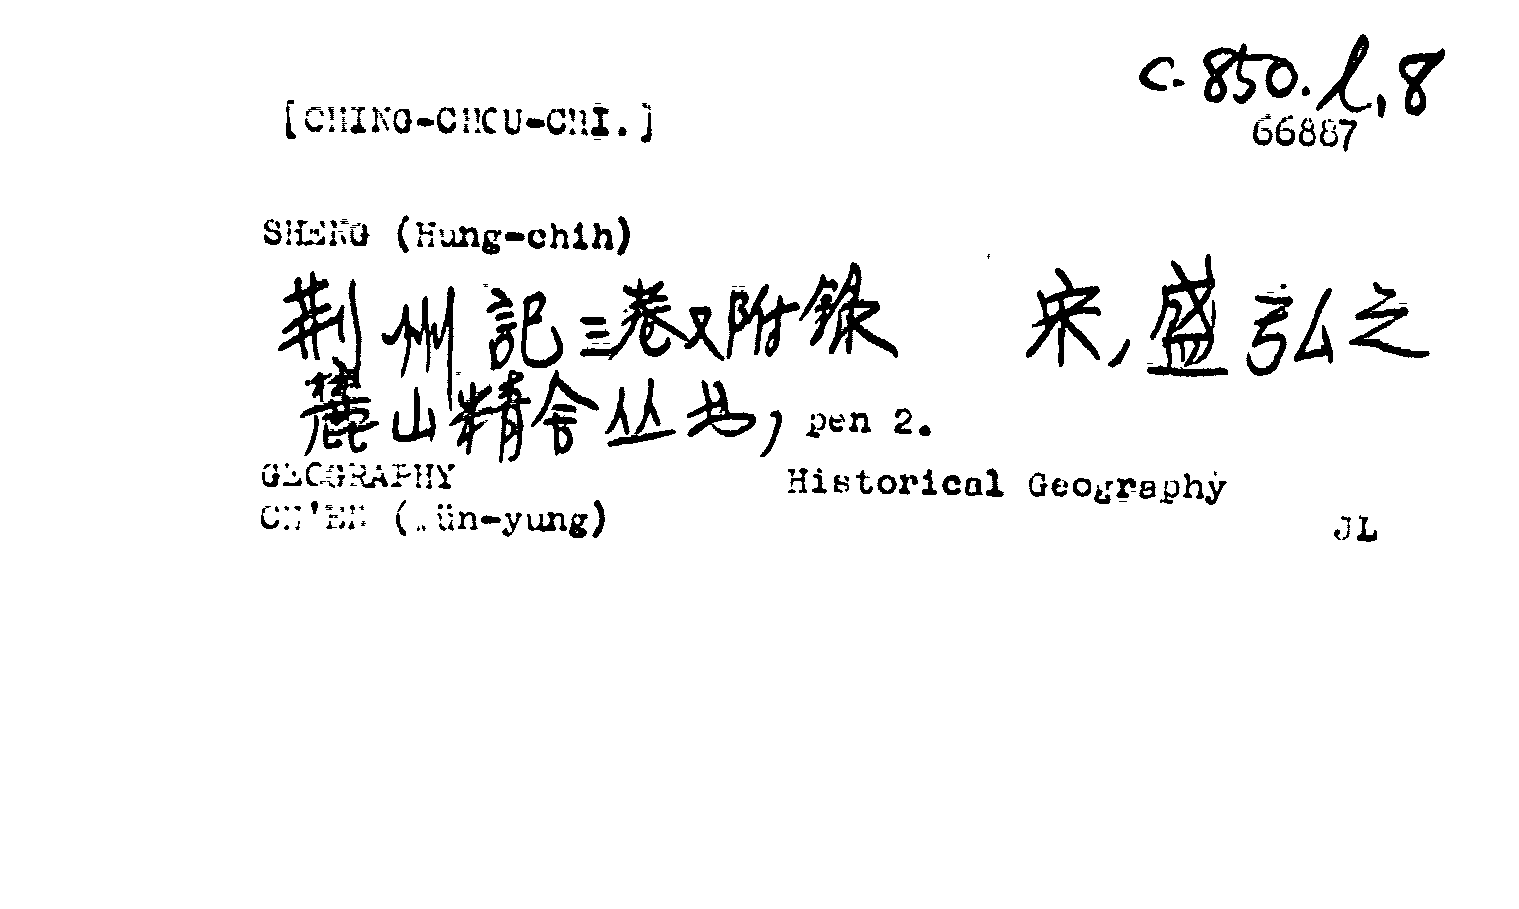 c.850.l,8
[CHING-CHOU-CHI.]
66887
SHENG (Hung-chih)
荆州記三卷又附錄 宋,盛弘之
麓山精舍丛书, pen 2.
GEOGRAPHY Historical Geography
CH'EN (Yün-yung)
JL